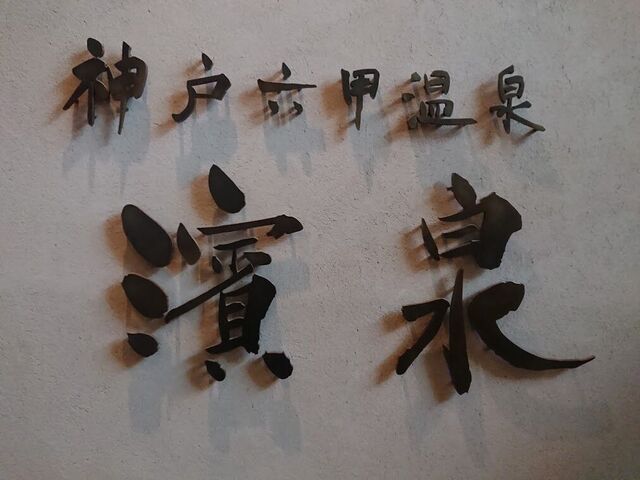 神戸六甲温泉
濱泉